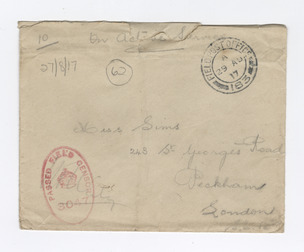 10
on Active Service
27/8/17
60
FIELD POST OFFICE
A
29 AU
17
183
Miss Sims
263 St Georges Road
Peckham
London
PASSED FIELD CENSOR